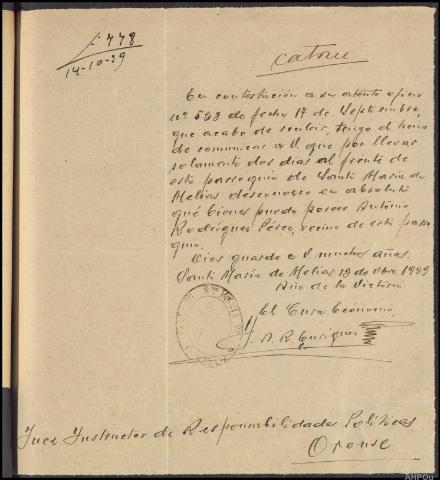 1-478
14-10-39
catorce
En contestación a su atento oficio
nº 598 de fecha 17 de Septiembre,
que acabo de recibir, tengo el honor
de comunicar a V. que por llevar
solamente dos dias al frente de
esta parroquia de Santa María de
Melias desconozco en absoluto
qué bienes pueda poseer Antonio
Rodríguez Pérez, vecino de esta parro
quia.
Dios guarde a V. muchos años.
Santa María de Melias 19 de Obre 1939
Año de la Victoria
El Cura Ecónomo,
A. R. Enríquez
Juez Instructor de Responsabilidades Políticas
Orense
AHPOu